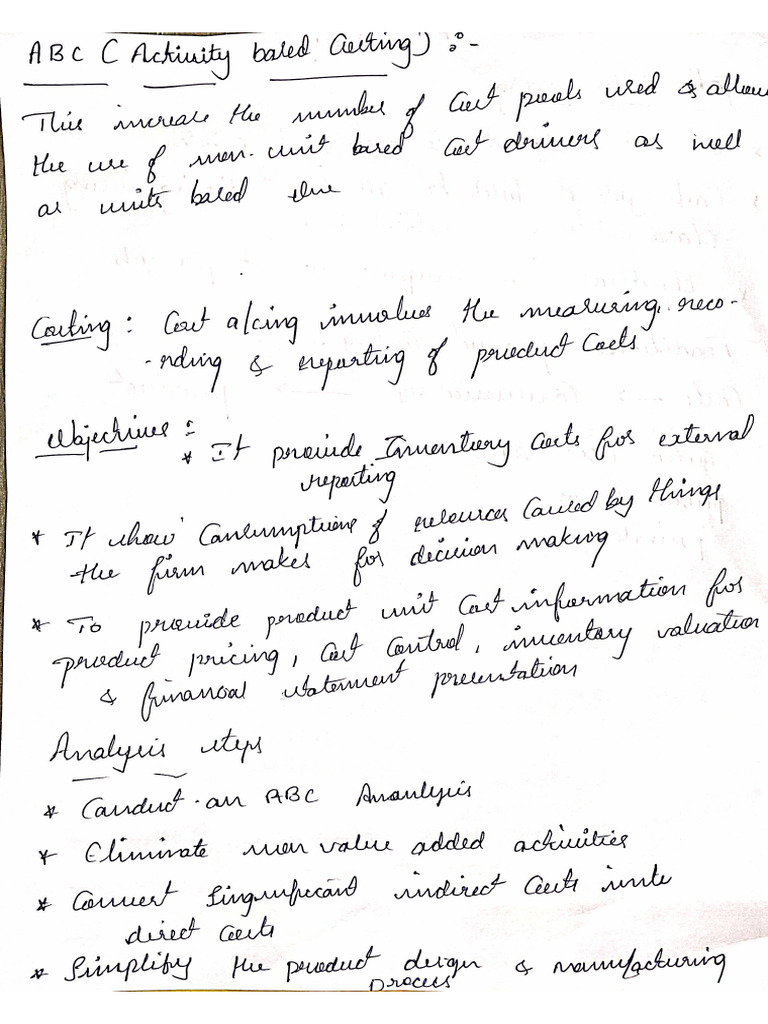 ABC (Activity based Costing) :-
This increase the number of Cost pools used & allow
the use of non-unit based Cost drivers as well
as units based
Costing : Cost a/cing involves the measuring, reco-
-rding & reporting of product Costs
Objectives :
* It provide Inventory Costs for external
reporting
* It show Consumptions of resources Caused by things
the firm makes for decision making
* To provide product unit Cost information for
product pricing, Cost Control, inventory valuation
& financial statement presentation
Analysis steps
* Conduct an ABC Ananlysis
* Eliminate non value added activities
* Convert Singnificant indirect Costs into
direct Costs
* Simplify the product design & manufacturing
Process